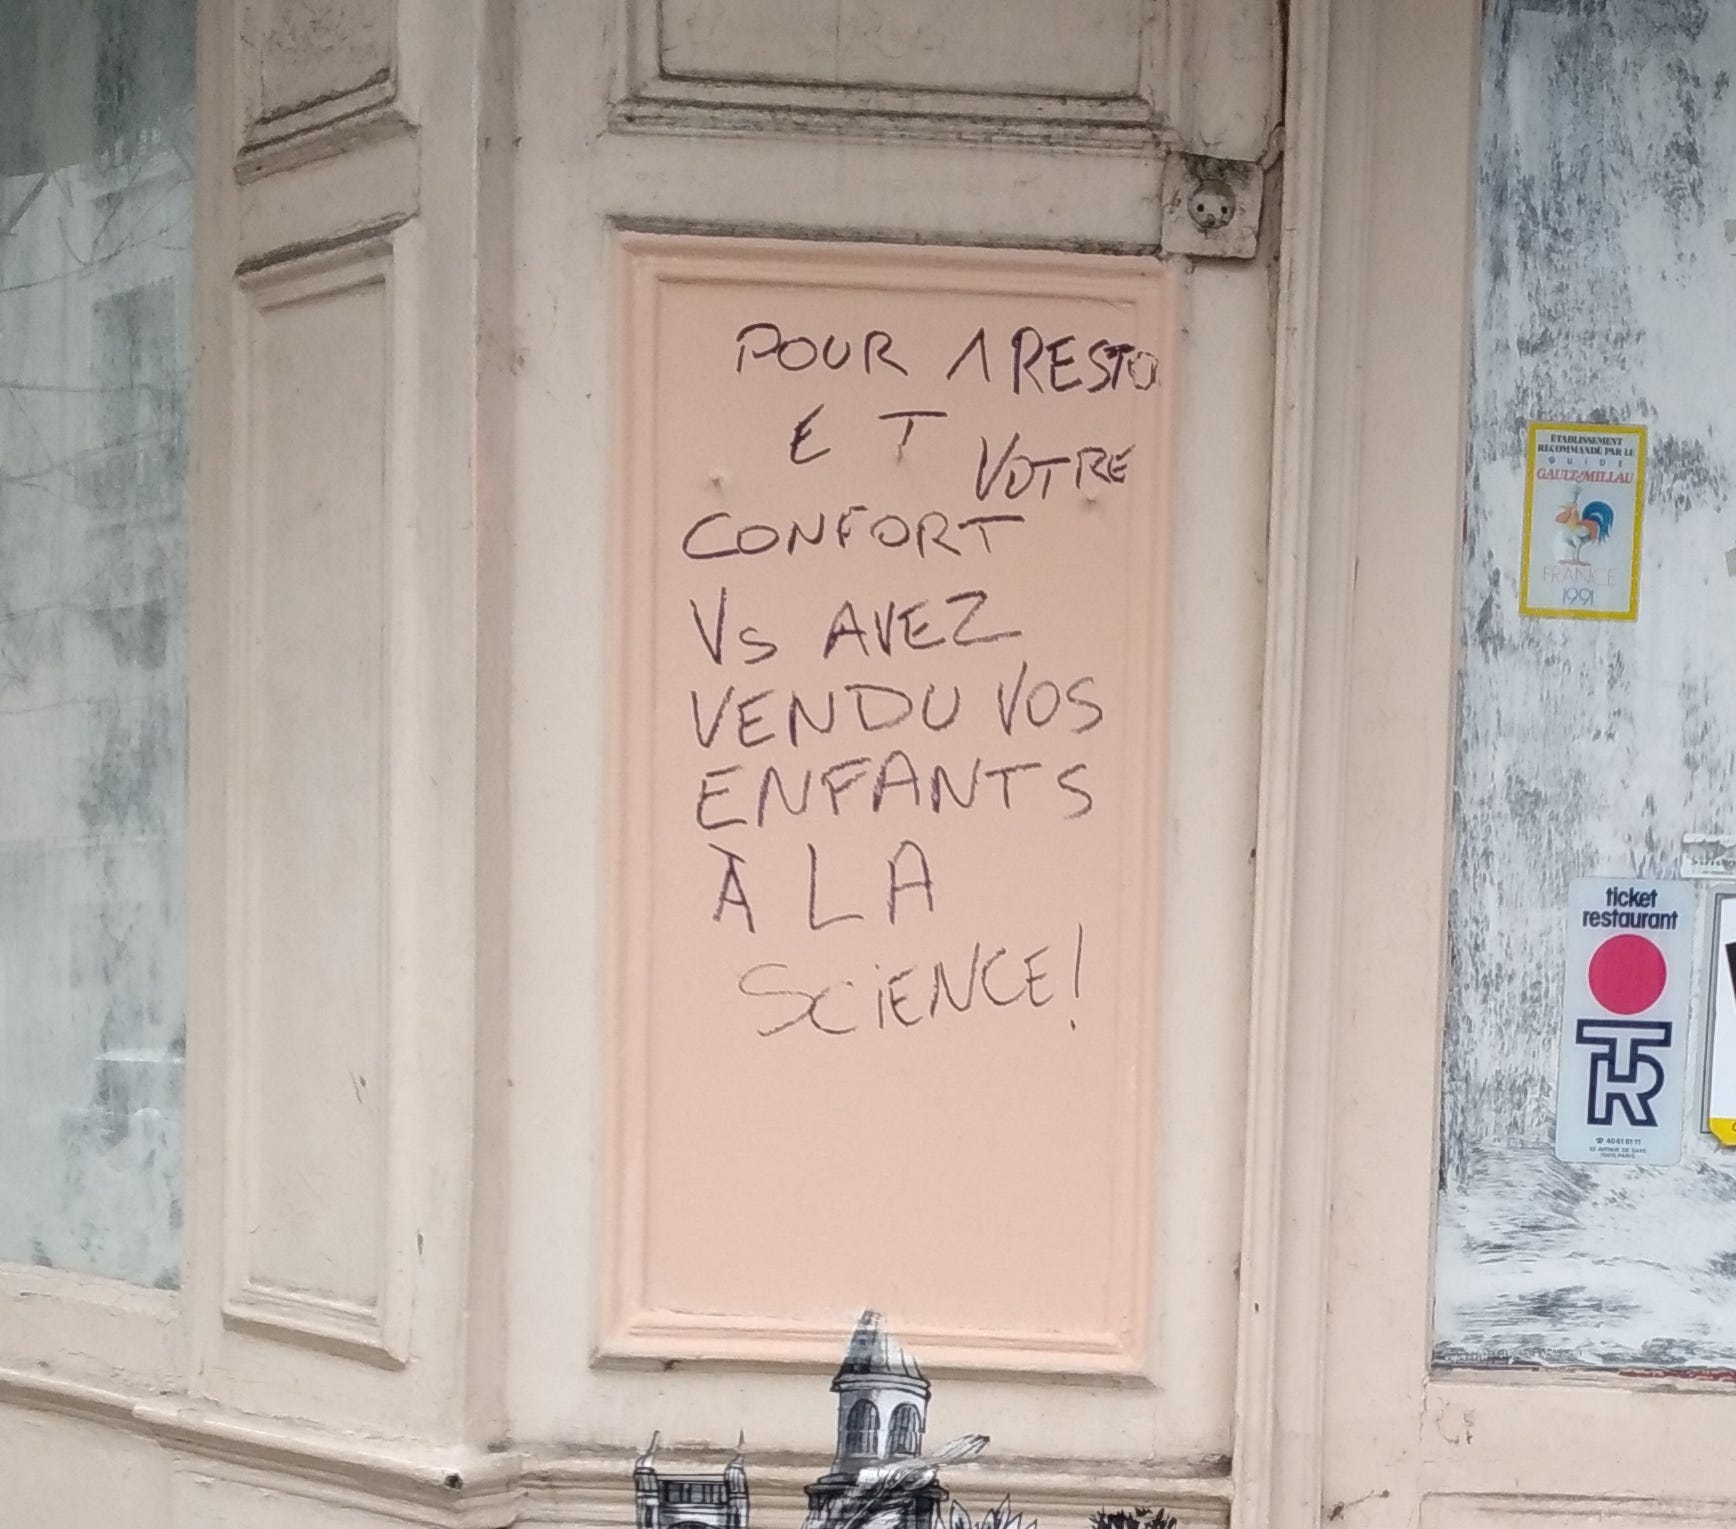 POUR 1 RESTO
ET VOTRE
CONFORT
Vs AVEZ
VENDU VOS
ENFANTS
À LA
SCiENCE!
ÉTABLISSEMENT
RECOMMANDÉ PAR LE
GUIDE
GAULT&MILLAU
FRANCE
1991
ticket
restaurant
TR